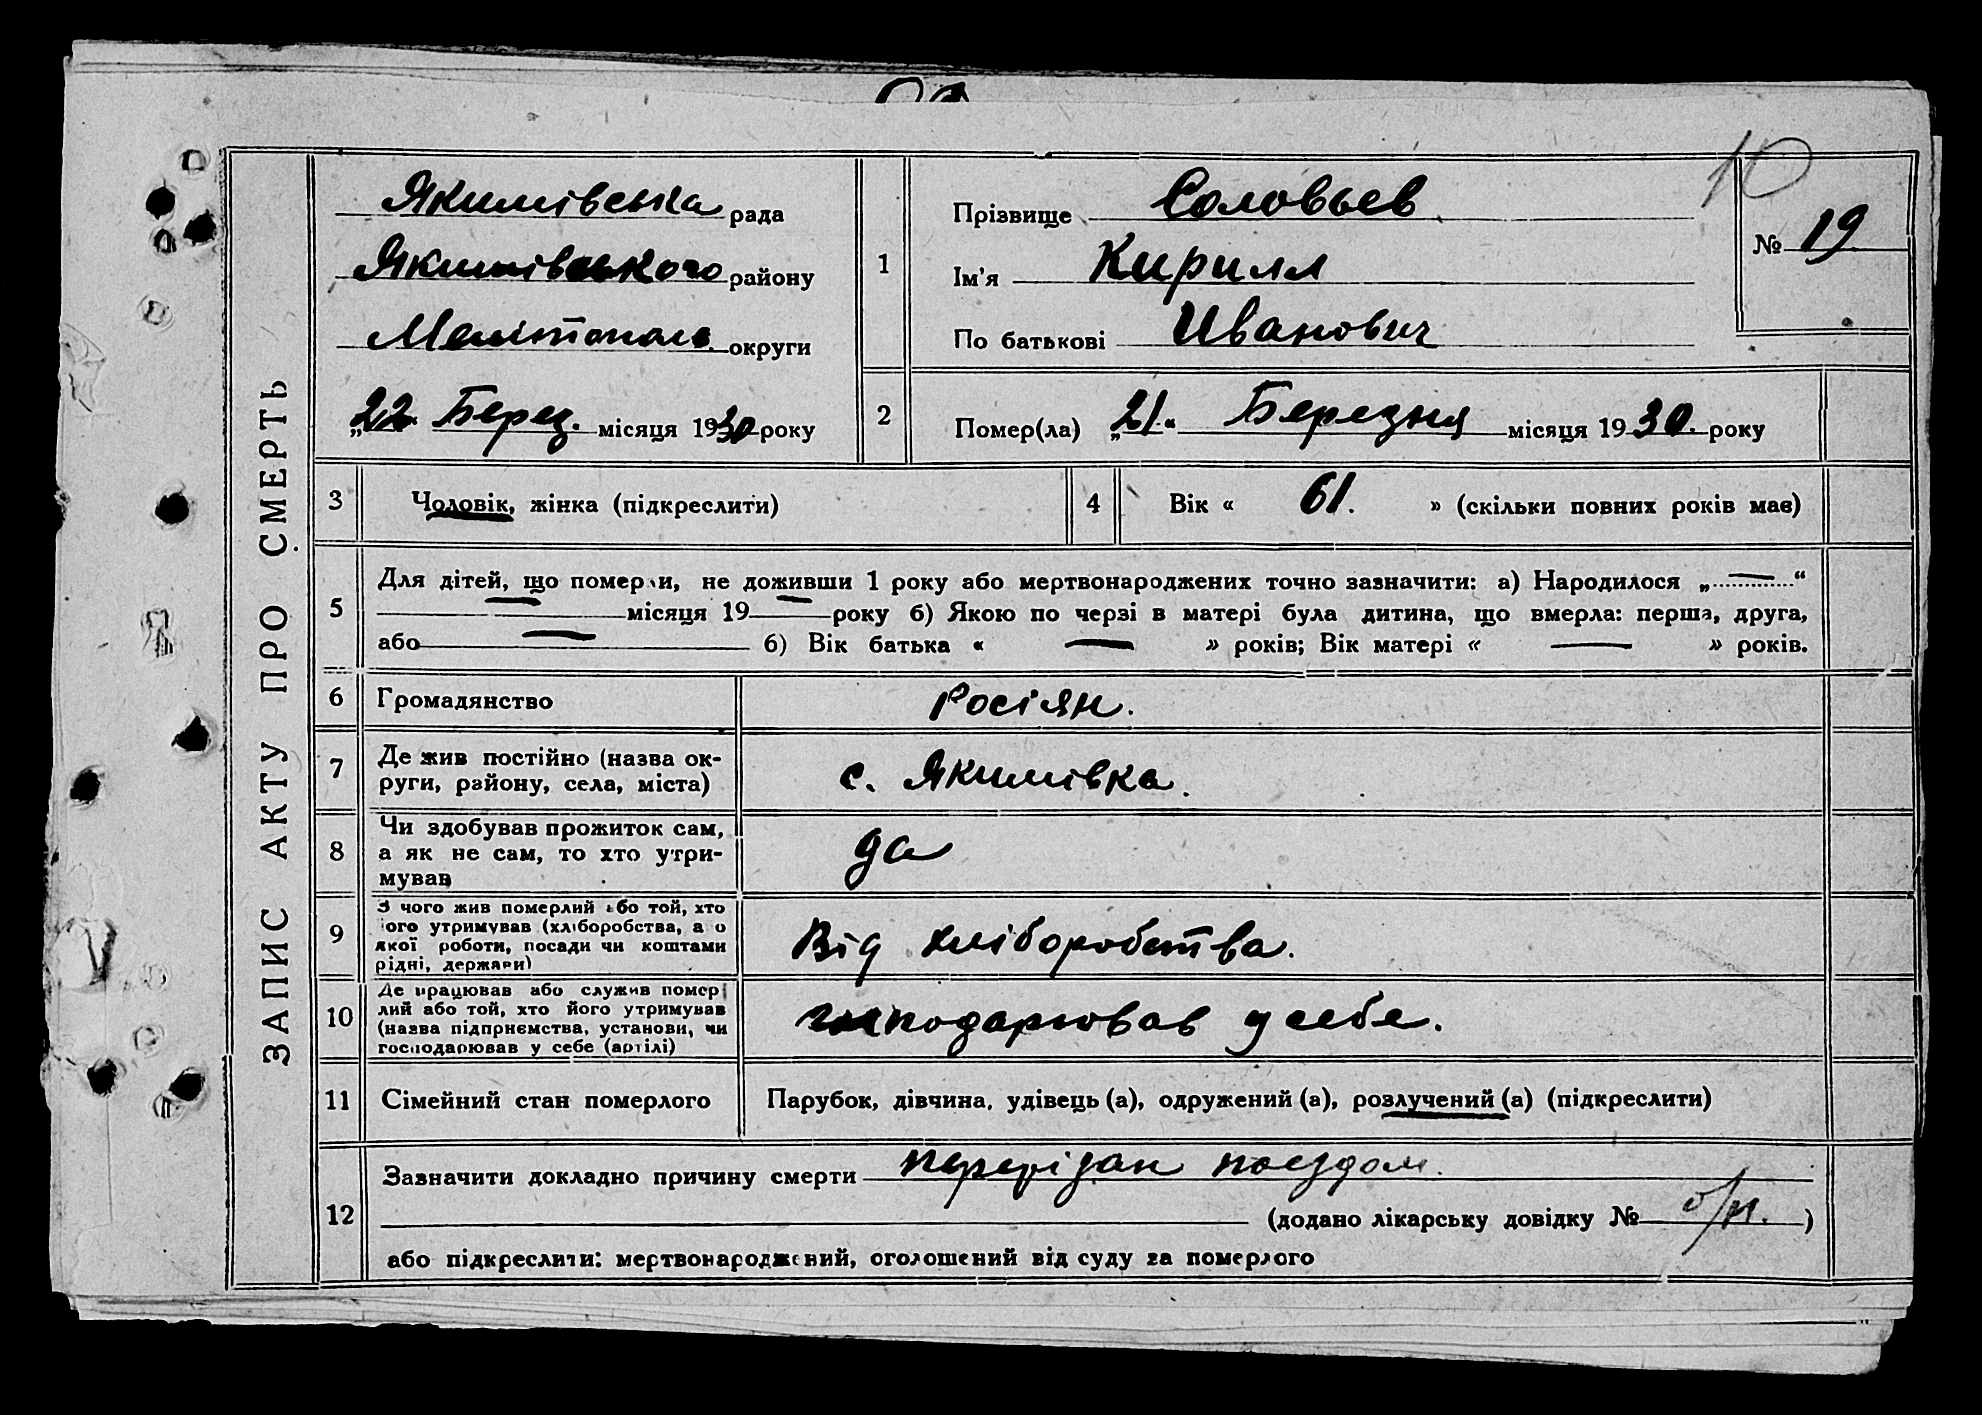 ЗАПИС АКТУ ПРО СМЕРТЬ
10
№ 19
Якимівська рада
Якимівського району
Мелітополь. округи
„22 Берез. місяця 1930 року
1
Прізвище Соловьев
Ім'я Кирилл
По батькові Иванович
2
Помер(ла) „21“ Березня місяця 1930. року
3 Чоловік, жінка (підкреслити)
4 Вік « 61. » (скільки повних років має)
5 Для дітей, що померли, не доживши 1 року або мертвонароджених точно зазначити: а) Народилося „ — “
— місяця 19 — року б) Якою по черзі в матері була дитина, що вмерла: перша, друга,
або — б) Вік батька « — » років; Вік матері « — » років.
6 Громадянство Росіян.
7 Де жив постійно (назва ок-
руги, району, села, міста) с. Якимівка.
8 Чи здобував прожиток сам,
а як не сам, то хто утри-
мував да
9 З чого жив померлий або той, хто
його утримував (хліборобства, а о
якої роботи, посади чи коштами
рідні, держави) Від хліборобства.
10 Де працював або служив помер
лий або той, хто його утримував
(назва підприємства, установи, чи
господарював у себе (артілі) господарював у себе.
11 Сімейний стан померлого Парубок, дівчина, удівець (а), одружений (а), розлучений (а) (підкреслити)
12 Зазначити докладно причину смерти перерізан поездом.
(додано лікарську довідку № б/н. )
або підкреслити: мертвонароджений, оголошений від суду за померлого